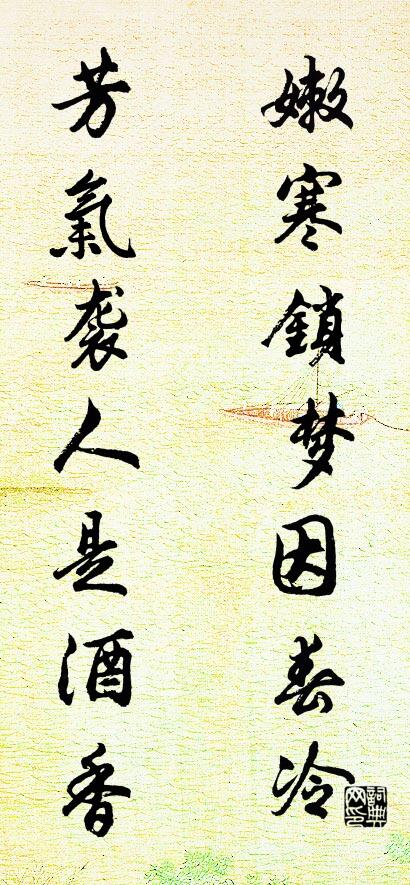 嫩寒鎖梦因春冷
芳氣袭人是酒香
詞典网印